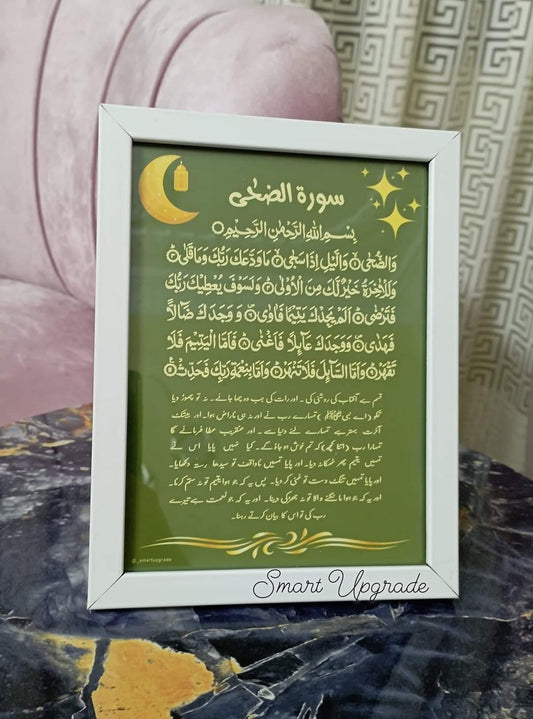 سورة الضحى
بِسْمِ اللهِ الرَّحْمٰنِ الرَّحِيْمِ○
وَالضُّحٰى۝ وَالَّيْلِ اِذَا سَجٰى۝ مَا وَدَّعَكَ رَبُّكَ وَمَا قَلٰى۝
وَلَلْاٰخِرَةُ خَيْرٌ لَّكَ مِنَ الْاُوْلٰى۝ وَلَسَوْفَ يُعْطِيْكَ رَبُّكَ
فَتَرْضٰى۝ اَلَمْ يَجِدْكَ يَتِيْمًا فَاٰوٰى۝ وَوَجَدَكَ ضَآلًّا
فَهَدٰى۝ وَوَجَدَكَ عَآئِلًا فَاَغْنٰى۝ فَاَمَّا الْيَتِيْمَ فَلَا
تَقْهَرْ۝ وَاَمَّا السَّآئِلَ فَلَا تَنْهَرْ۝ وَاَمَّا بِنِعْمَةِ رَبِّكَ فَحَدِّثْ۝
قسم ہے آفتاب کی روشنی کی۔ اور رات کی جب وہ چھا جائے۔ نہ تو چھوڑ دیا
تجھ کو (اے نبی ﷺ) تمہارے رب نے اور نہ ہی ناراض ہوا۔ اور بیشک
آخرت بہتر ہے تمہارے لئے دنیا سے۔ اور عنقریب عطا فرمائے گا
تمہارا رب (اتنا کچھ) کہ تم خوش ہو جاؤ گے۔ کیا نہیں پایا اس نے
تمہیں یتیم پھر ٹھکانہ دیا۔ اور پایا تمہیں ناواقف تو سیدھا رستہ دکھایا۔
اور پایا تمہیں تنگ دست تو غنی کر دیا۔ پس یہ کہ جو ہوا یتیم تو نہ ستم کرنا۔
اور یہ کہ جو ہوا مانگنے والا تو نہ جھڑکی دینا۔ اور یہ کہ جو نعمت ہے تیرے
رب کی تو اس کا بیان کرتے رہنا۔
@_smartupgrade
Smart Upgrade